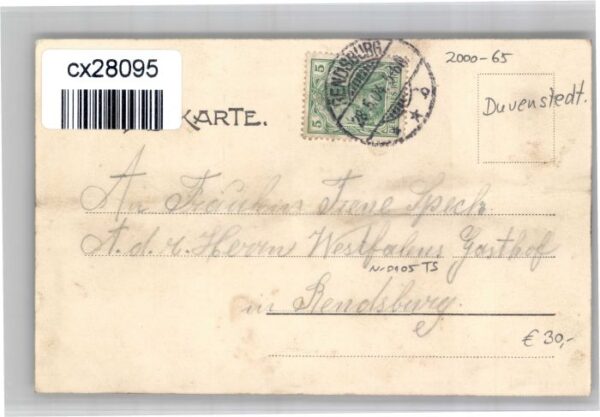 cx28095
KARTE.
5 5
RENDSBURG
28.5.04
2000-65
Duvenstedt.
An Fräulein Irene Speck
A. d. r. Herrn Westfalens Gasthof
in Rendsburg.
€ 30,-